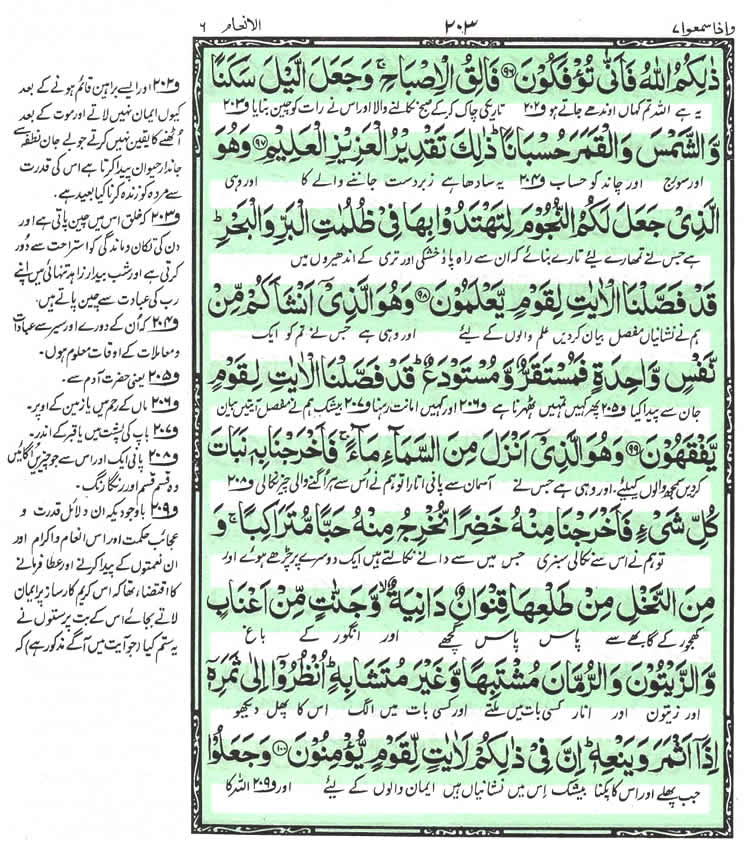 واذا سمعوا ۷
۲۰۳
الانعام ۶
ذٰلِكُمُ اللّٰهُ فَاَنّٰى تُؤْفَكُوْنَ ﴿۹۶﴾ فَالِقُ الْاِصْبَاحِ ۚ وَجَعَلَ الَّيْلَ سَكَنًا
یہ ہے اللہ تم کہاں اوندھے جاتے ہو و۲۰۲ تاریکی چاک کرکے صبح نکالنے والا اور اس نے رات کو چین بنایا و۲۰۳
وَّالشَّمْسَ وَالْقَمَرَ حُسْبَانًا ؕ ذٰلِكَ تَقْدِيْرُ الْعَزِيْزِ الْعَلِيْمِ ﴿۹۷﴾ وَهُوَ
اور سورج اور چاند کو حساب و۲۰۴ یہ سادھا ہے زبردست جاننے والے کا اور وہی
الَّذِيْ جَعَلَ لَكُمُ النُّجُوْمَ لِتَهْتَدُوْا بِهَا فِيْ ظُلُمٰتِ الْبَرِّ وَالْبَحْرِ ؕ
ہے جس نے تمھارے لیئے تارے بنائے کہ ان سے راہ پاؤ خشکی اور تری کے اندھیروں میں
قَدْ فَصَّلْنَا الْاٰيٰتِ لِقَوْمٍ يَّعْلَمُوْنَ ﴿۹۸﴾ وَهُوَ الَّذِيْۤ اَنْشَاَكُمْ مِّنْ
ہم نے نشانیاں مفصل بیان کردیں علم والوں کے لیئے اور وہی ہے جس نے تم کو ایک
نَّفْسٍ وَّاحِدَةٍ فَمُسْتَقَرٌّ وَّمُسْتَوْدَعٌ ؕ قَدْ فَصَّلْنَا الْاٰيٰتِ لِقَوْمٍ
جان سے پیدا کیا و۲۰۵ پھر کہیں تمہیں ٹھہرنا ہے و۲۰۶ اور کہیں امانت رہنا و۲۰۷ بیشک ہم نے مفصل آیتیں بیان
يَّفْقَهُوْنَ ﴿۹۹﴾ وَهُوَ الَّذِيْۤ اَنْزَلَ مِنَ السَّمَآءِ مَآءً ۚ فَاَخْرَجْنَا بِهٖ نَبَاتَ
کردیں سمجھ والوں کیلئے اور وہی ہے جس نے آسمان سے پانی اتارا تو ہم نے اُس سے ہر اُگنے والی چیز نکالی و۲۰۸
كُلِّ شَيْءٍ فَاَخْرَجْنَا مِنْهُ خَضِرًا نُّخْرِجُ مِنْهُ حَبًّا مُّتَرَاكِبًا ۚ وَ
تو ہم نے اس سے نکالی سبزی جس میں سے دانے نکالتے ہیں ایک دوسرے پر چڑھے ہوئے اور
مِنَ النَّخْلِ مِنْ طَلْعِهَا قِنْوَانٌ دَانِيَةٌ ۙ وَّجَنّٰتٍ مِّنْ اَعْنَابٍ
کھجور کے گابھے سے پاس پاس گچھے اور انگور کے باغ
وَّالزَّيْتُوْنَ وَالرُّمَّانَ مُشْتَبِهًا وَّغَيْرَ مُتَشَابِهٍ ؕ اُنْظُرُوْۤا اِلٰى ثَمَرِهٖۤ
اور زیتون اور انار کسی بات میں ملتے اور کسی بات میں الگ اس کا پھل دیکھو
اِذَاۤ اَثْمَرَ وَيَنْعِهٖ ؕ اِنَّ فِيْ ذٰلِكُمْ لَاٰيٰتٍ لِّقَوْمٍ يُّؤْمِنُوْنَ ﴿۱۰۰﴾ وَجَعَلُوْا
جب پھلے اور اس کا پکنا بیشک اس میں نشانیاں ہیں ایمان والوں کے لیئے اور و۲۰۹ اللہ کا
و۲۰۲ اور ایسے براہین قائم ہونے کے بعد
کیوں ایمان نہیں لاتے اور موت کے بعد
اُٹھنے کا یقین نہیں کرتے جو بے جان نطفہ سے
جاندار حیوان پیدا کرتا ہے اس کی قدرت
سے مردہ کو زندہ کرنا کیا بعید ہے۔
و۲۰۳ کہ خلق اس میں چین پاتی ہے اور
دن کی تکان و ماندگی کو استراحت سے دُور
کرتی ہے اور شب بیدار زاہد تنہائی میں اپنے
رب کی عبادت سے چین پاتے ہیں۔
و۲۰۴ کہ اُن کے دورے اور سیر سے عبادات
و معاملات کے اوقات معلوم ہوں۔
و۲۰۵ یعنی حضرت آدم سے۔
و۲۰۶ ماں کے رحم میں یا زمین کے اوپر۔
و۲۰۷ باپ کی پشت میں یا قبر کے اندر۔
و۲۰۸ پانی ایک اور اس سے جو چیزیں اُگائیں
وہ قسم قسم اور رنگا رنگ۔
و۲۰۹ باوجودیکہ ان دلائل قدرت و
عجائب حکمت اور اس انعام و اکرام اور
ان نعمتوں کے پیدا کرنے اور عطا فرمانے
کا اقتضا تھا کہ اس کریم کارساز پر ایمان
لاتے بجائے اس کے بت پرستوں نے
یہ ستم کیا (جو آیت میں آگے مذکور ہے) کہ